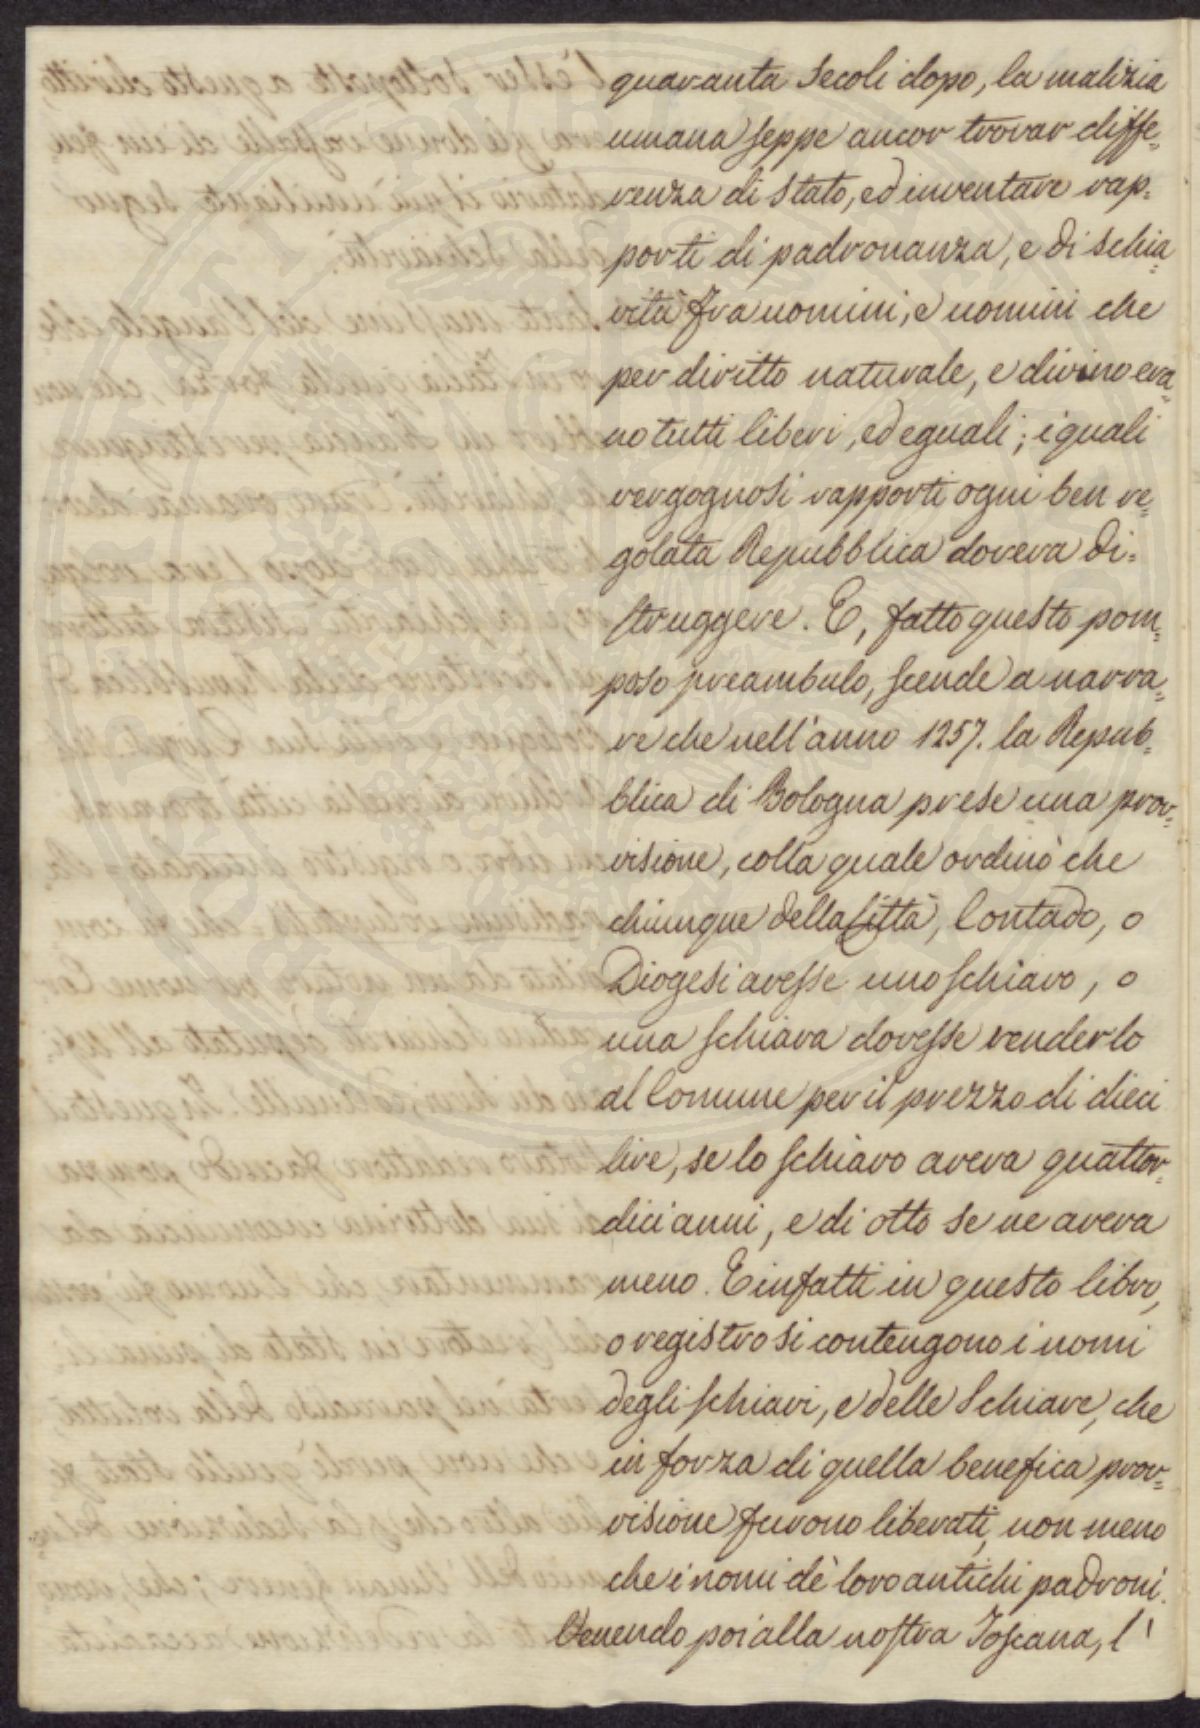 quaranta secoli dopo, la malizia
umana seppe ancor trovar diffe=
renza di stato, ed inventare rap=
porti di padronanza, e di schia=
vitù fra uomini, e uomini che
per diritto naturale, e divino era=
no tutti liberi, ed eguali; i quali
vergognosi rapporti ogni ben re=
golata Repubblica doveva di=
struggere. E, fatto questo pom=
poso preambulo, scende a narra=
re che nell'anno 1257. la Repub=
blica di Bologna prese una prov=
visione, colla quale ordinò che
chiunque della Città, Contado, o
Diogesi avesse uno schiavo, o
una schiava dovesse venderlo
al Comune per il prezzo di dieci
lire, se lo schiavo aveva quattor=
dici anni, e di otto se ne aveva
meno. E infatti in questo libro,
o registro si contengono i nomi
degli schiavi, e delle Schiave, che
in forza di quella benefica prov=
visione furono liberati, non meno
che i nomi de' loro antichi padroni.
Venendo poi alla nostra Toscana, l'